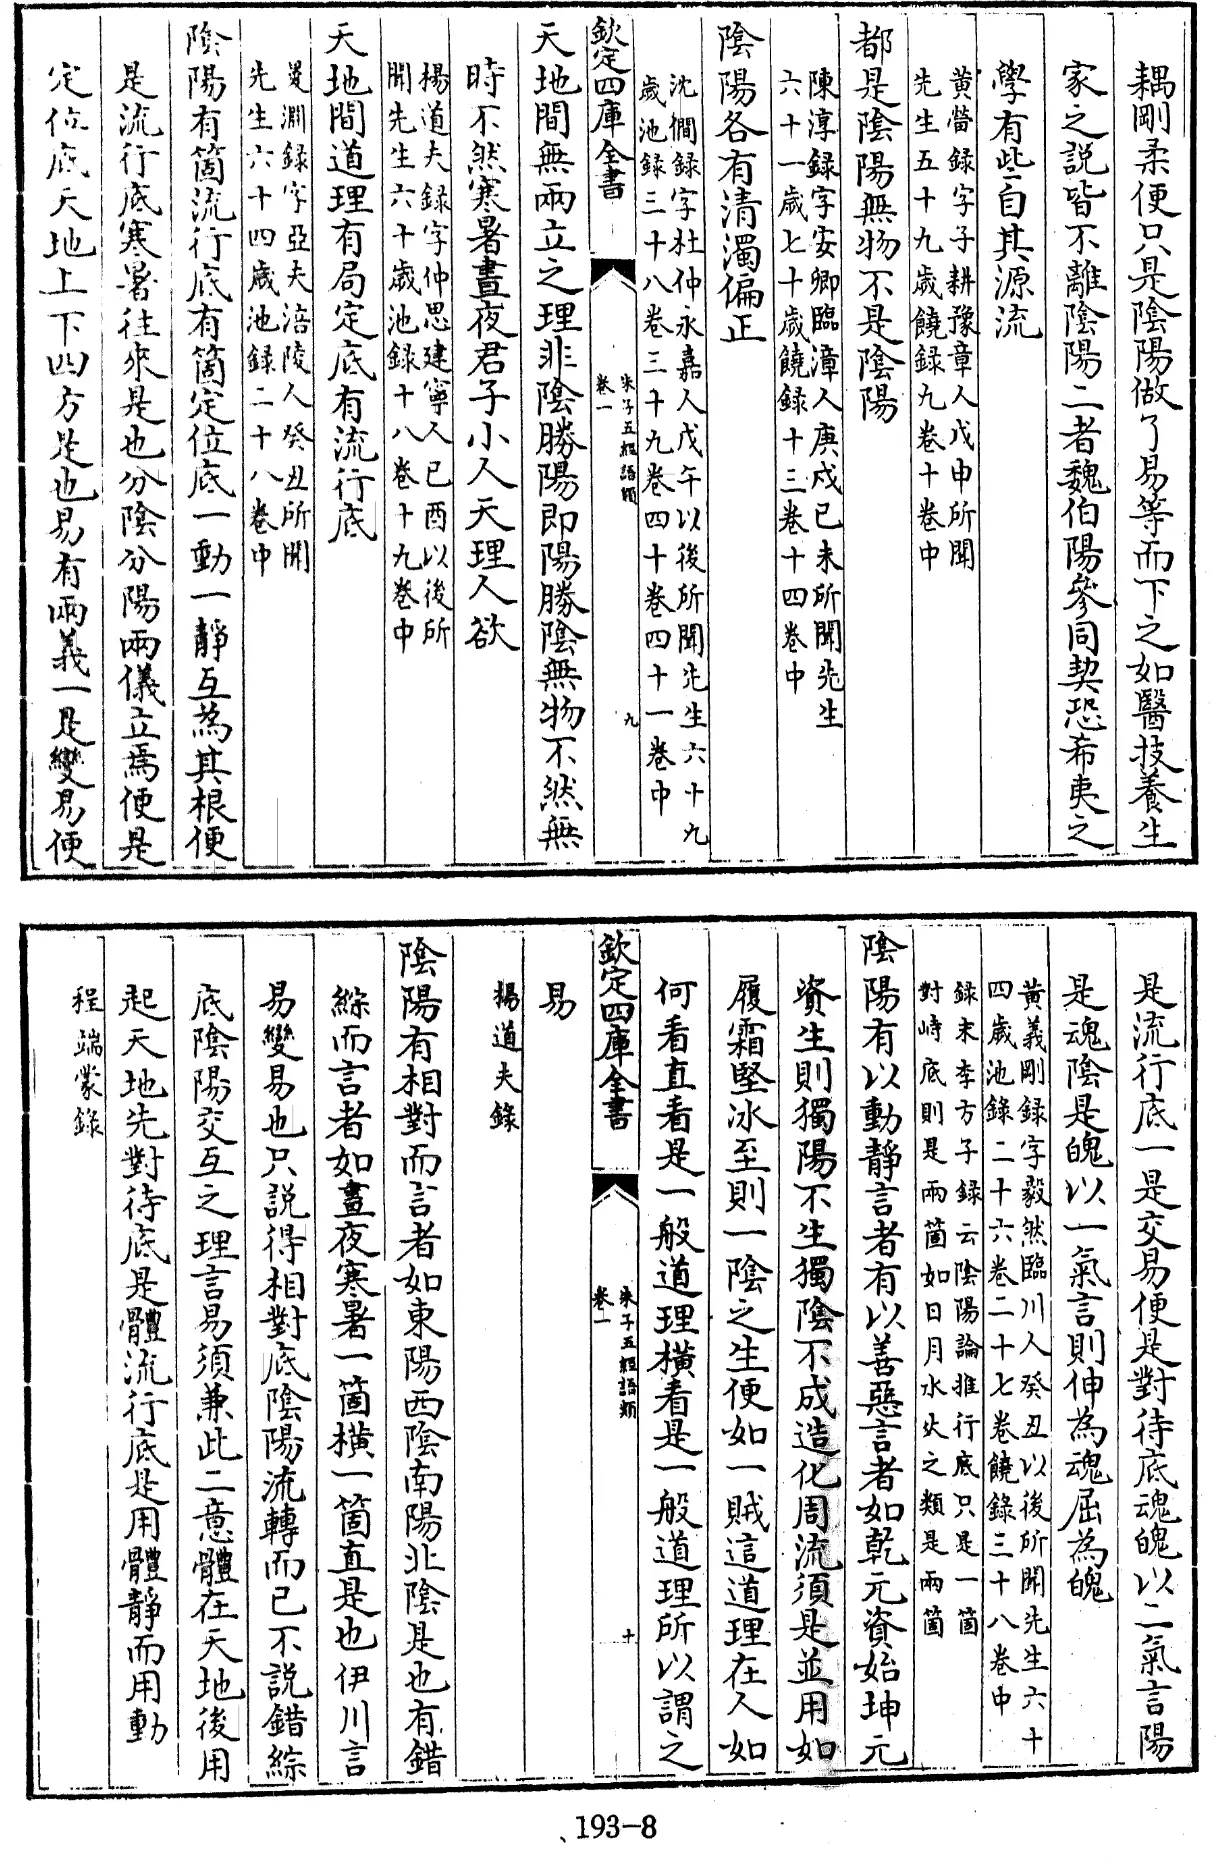 耦剛柔便只是陰陽做了易等而下之如醫技養生
家之說皆不離陰陽二者魏伯陽參同契恐希夷之
學有些自其源流
黃㽦録字子耕豫章人戊申所聞
先生五十九歲饒録九卷十卷中
都是陰陽無物不是陰陽
陳淳録字安卿臨漳人庚戍己未所聞先生
六十一歲七十歲饒録十三卷十四卷中
陰陽各有清濁偏正
沈僩録字杜仲永嘉人戊午以後所聞先生六十九
歲池録三十八卷三十九卷四十卷四十一卷中
欽定四庫全書
朱子五經語類
卷一
九
天地間無兩立之理非陰勝陽即陽勝陰無物不然無
時不然寒暑晝夜君子小人天理人欲
楊道夫録字仲思建寧人已酉以後所
聞先生六十歲池録十八卷十九卷中
天地間道理有局定底有流行底
㬊淵録字亞夫涪陵人癸丑所聞
先生六十四歲池録二十八卷中
陰陽有箇流行底有箇定位底一動一靜互為其根便
是流行底寒暑往來是也分陰分陽兩儀立焉便是
定位底天地上下四方是也易有兩義一是變易便
是流行底一是交易便是對待底魂魄以二氣言陽
是魂陰是魄以一氣言則伸為魂屈為魄
黃義剛録字毅然臨川人癸丑以後所聞先生六十
四歲池錄二十六卷二十七卷饒錄三十八卷中
録末李方子録云陰陽論推行底只是一箇
對峙底則是兩箇如日月水火之類是兩箇
陰陽有以動靜言者有以善惡言者如乾元資始坤元
資生則獨陽不生獨陰不成造化周流須是並用如
履霜堅冰至則一陰之生便如一賊這道理在人如
何看直看是一般道理橫看是一般道理所以謂之
欽定四庫全書
朱子五經語類
卷一
十
易
楊道夫錄
陰陽有相對而言者如東陽西陰南陽北陰是也有錯
綜而言者如晝夜寒暑一箇橫一箇直是也伊川言
易變易也只說得相對底陰陽流轉而已不說錯綜
底陰陽交互之理言易須兼此二意體在天地後用
起天地先對待底是體流行底是用體靜而用動
程端蒙錄
193-8